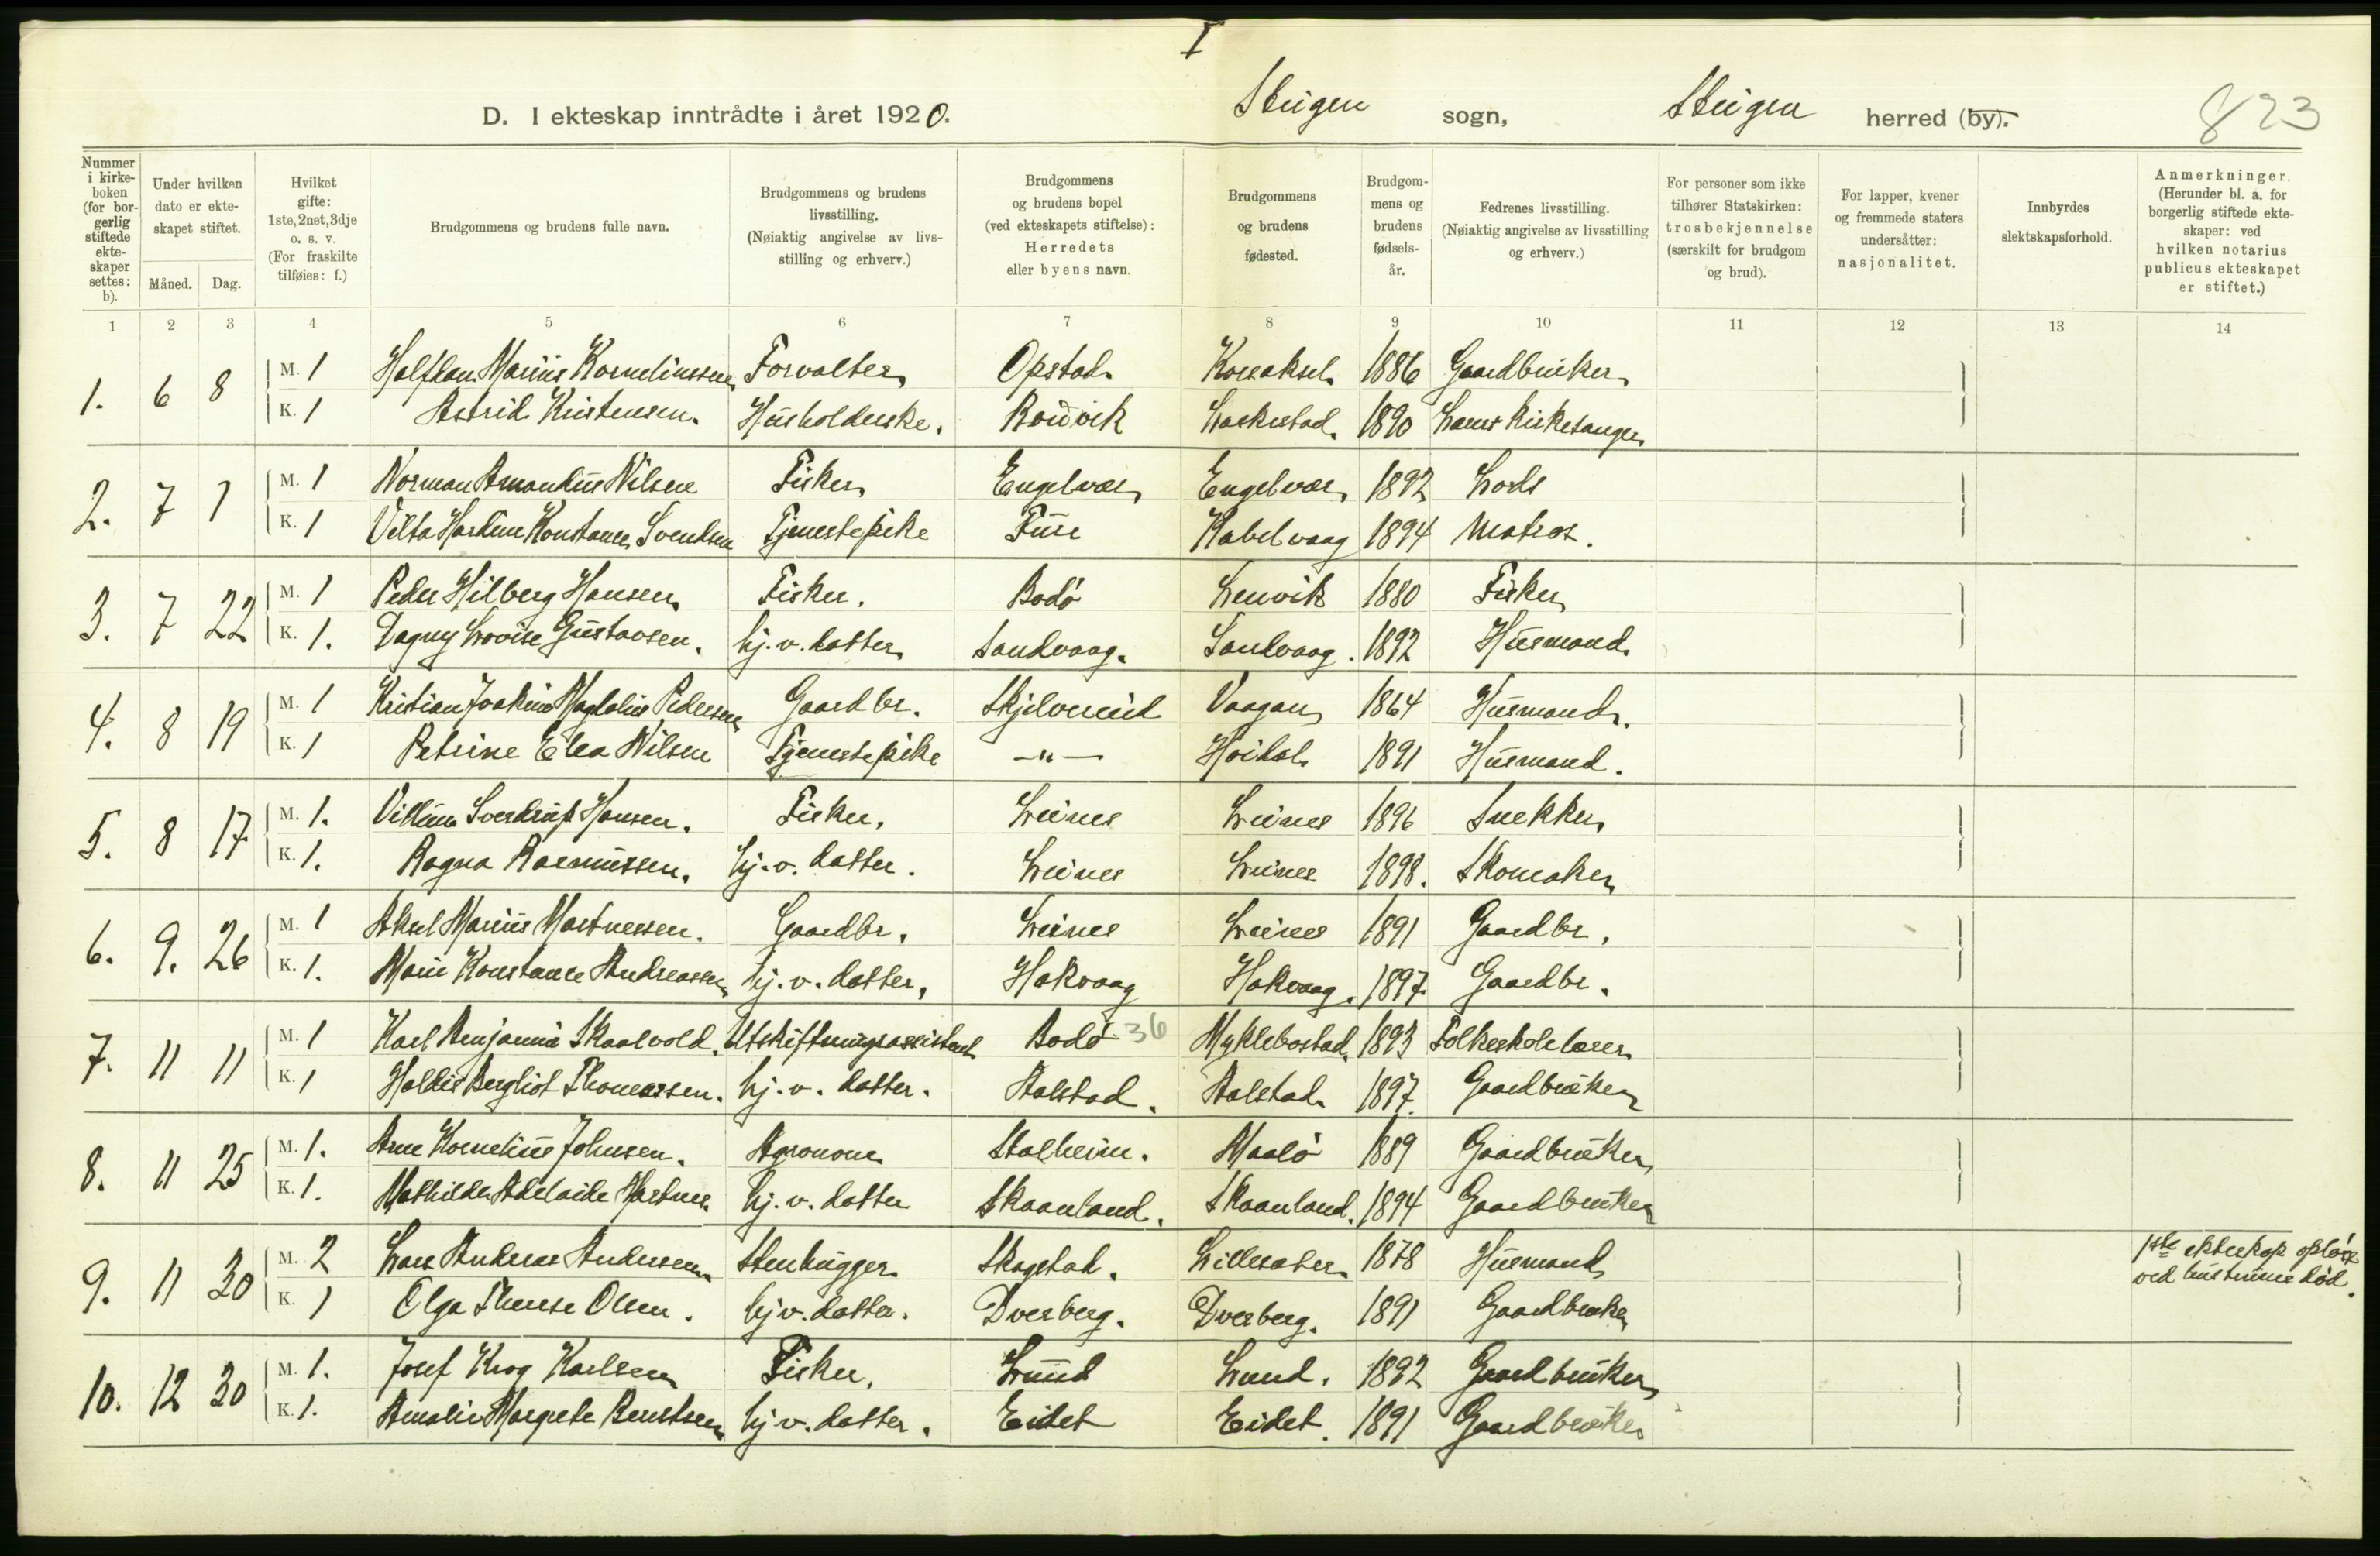 I
D. I ekteskap inntrådte i året 1920. Steigen sogn, Steigen herred (by). 823
Nummer i kirkeboken (for borgerlig stiftede ekteskaper settes: b).
Under hvilken dato er ekteskapet stiftet.
Måned. Dag.
Hvilket gifte: 1ste, 2net, 3dje o. s. v. (For fraskilte tilføies: f.)
Brudgommens og brudens fulle navn.
Brudgommens og brudens livsstilling. (Nøiaktig angivelse av livsstilling og erhverv.)
Brudgommens og brudens bopel (ved ekteskapets stiftelse): Herredets eller byens navn.
Brudgommens og brudens fødested.
Brudgommens og brudens fødselsår.
Fedrenes livsstilling. (Nøiaktig angivelse av livsstilling og erhverv.)
For personer som ikke tilhører Statskirken: trosbekjennelse (særskilt for brudgom og brud).
For lapper, kvener og fremmede staters undersåtter: nasjonalitet.
Innbyrdes slektskapsforhold.
Anmerkninger. (Herunder bl. a. for borgerlig stiftede ekteskaper: ved hvilken notarius publicus ekteskapet er stiftet.)
1 2 3 4 5 6 7 8 9 10 11 12 13 14
1. 6 8 M. 1 Halfdan Marius Korneliussen Forvalter Opstad 1886 Gaardbruker
K. 1 Astrid Kristensen. Husholderske. 1890 Kirkesanger
2. 7 1 M. 1 Norman Amandus Nilsen Fisker Engelvær Engelvær 1892 Lods
K. 1 Konstance Svendsen Tjenestepike Fure Kabelvaag 1894 Matros.
3. 7 22 M. 1 Peder Hilberg Hansen Fisker. Bodö Lenvik 1880 Fisker
K. 1. Dagny Lovise Gustavsen. hj. v. datter Sandvaag. Sandvaag. 1892 Husmand
4. 8 19 M. 1 Kristian Joakim Pedersen Gaardbr. Skjelvereid Vaagan 1864 Husmand.
K. 1 Petrine Elea Nilsen Tjenestepike —"— 1891 Husmand.
5. 8 17 M. 1. Sverdrup Hansen. Fisker. Leines Leines 1896 Snekker
K. 1. Ragna Rasmussen. hj. v. datter. Leines Leines 1898. Skomaker
6. 9. 26 M. 1 Aksel Marius Martnessen. Gaardbr. Leines Leines 1891 Gaardbr.
K. 1. Marie Konstance Andreassen hj. v. datter. Hakvaag Hakvaag. 1897. Gaardbr.
7. 11 11 M. 1 Karl Benjamin Skaalvold. Utskiftningsassistent Bodö 36 Myklebostad. 1893 Folkeskolelærer
K. 1 Haldis Bergliot Thomassen. hj. v. datter. Aalstad. Aalstad 1897. Gaardbruker
8. 11 25 M. 1. Arne Kornelius Johnsen. Agronom Stalheim. Maalö 1889 Gaardbruker
K. 1. Mathilde Adelaide Martnes. hj. v. datter Skaanland. Skaanland. 1894 Gaardbruker
9. 11 30 M. 2 Lars Andreas Andersen Stenhugger Skagstad. 1878 Husmand 1ste ekteskap opløst
K. 1 Olga Therese Olsen. hj v. datter. Dverberg. Dverberg. 1891 Gaardbruker ved hustruens död.
10. 12 30 M. 1. Josef Krog Karlsen Fisker. Lund Lund. 1892 Gaardbruker
K. 1. Amalie Margrete Berntsen hj v. datter. Eidet Eidet. 1891 Gaardbruker